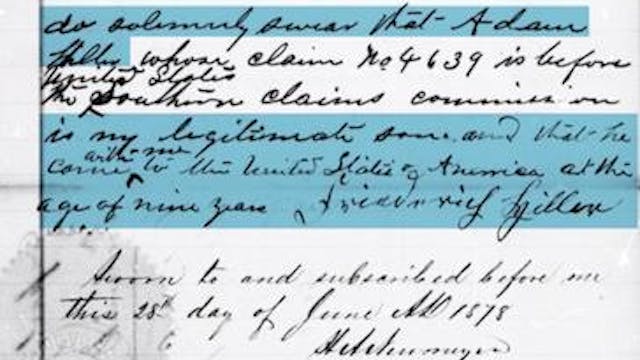 do solemnly swear that Adam
whose claim No 4639 is before
United States
the Southern claims commission
is my legitimate son and that he
with me
came to the United States of America at the
age of nine years Friederich Hiller
Sworn to and subscribed before me
this 28 day of June AD 1878